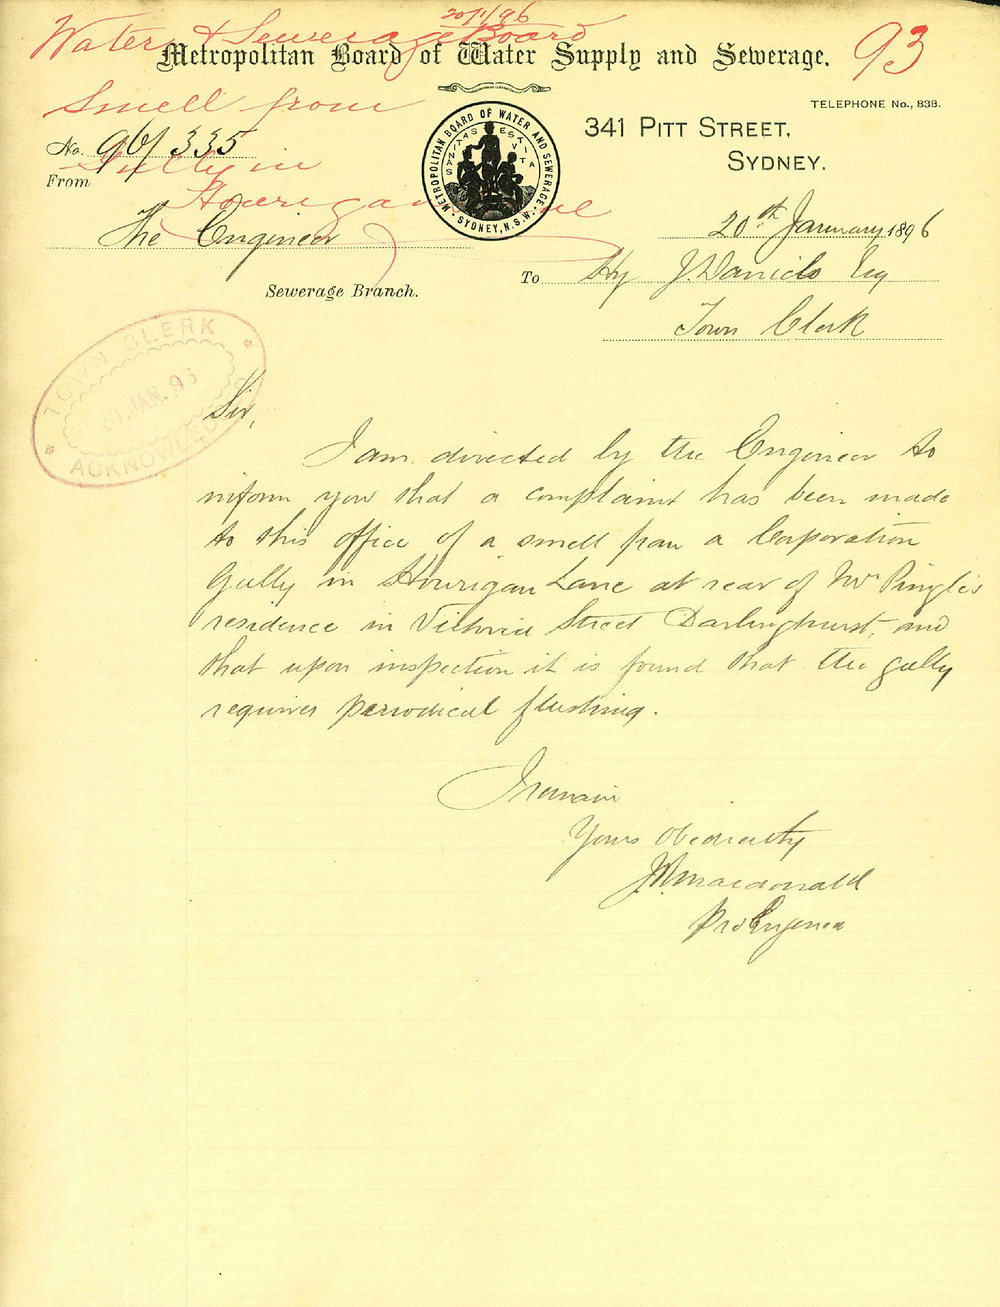 20/1/96
Water & Sewerage Board
93
Metropolitan Board of Water Supply and Sewerage.
Smell from
TELEPHONE No., 838.
341 PITT STREET,
SYDNEY.
No. 96/335
Gully in
From
Hourigan Lane
The Engineer
Sewerage Branch.
METROPOLITAN BOARD OF WATER AND SEWERAGE.
SYDNEY, N.S.W.
20th January 1896
To Hy J. Daniels Esq
Town Clerk
TOWN CLERK
20 JAN. 96
ACKNOWLEDGED
Sir,
I am directed by the Engineer to
inform you that a complaint has been made
to this office of a smell from a Corporation
Gully in Hourigan Lane at rear of Mr Pingle's
residence in Victoria Street Darlinghurst, and
that upon inspection it is found that the gully
requires periodical flushing.
I remain
Yours Obediently
Macdonald
Pro Engineer